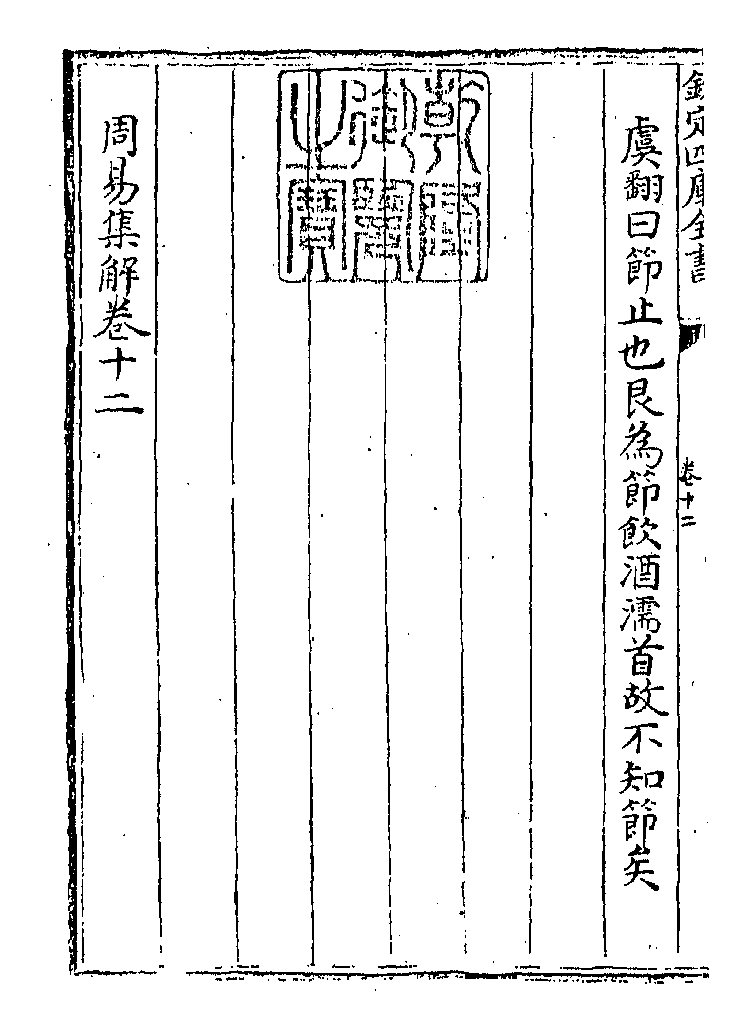 欽定四庫全書
卷十二
虞翻曰節止也艮為節飲酒濡首故不知節矣
乾隆
御覽
之寶
周易集解卷十二